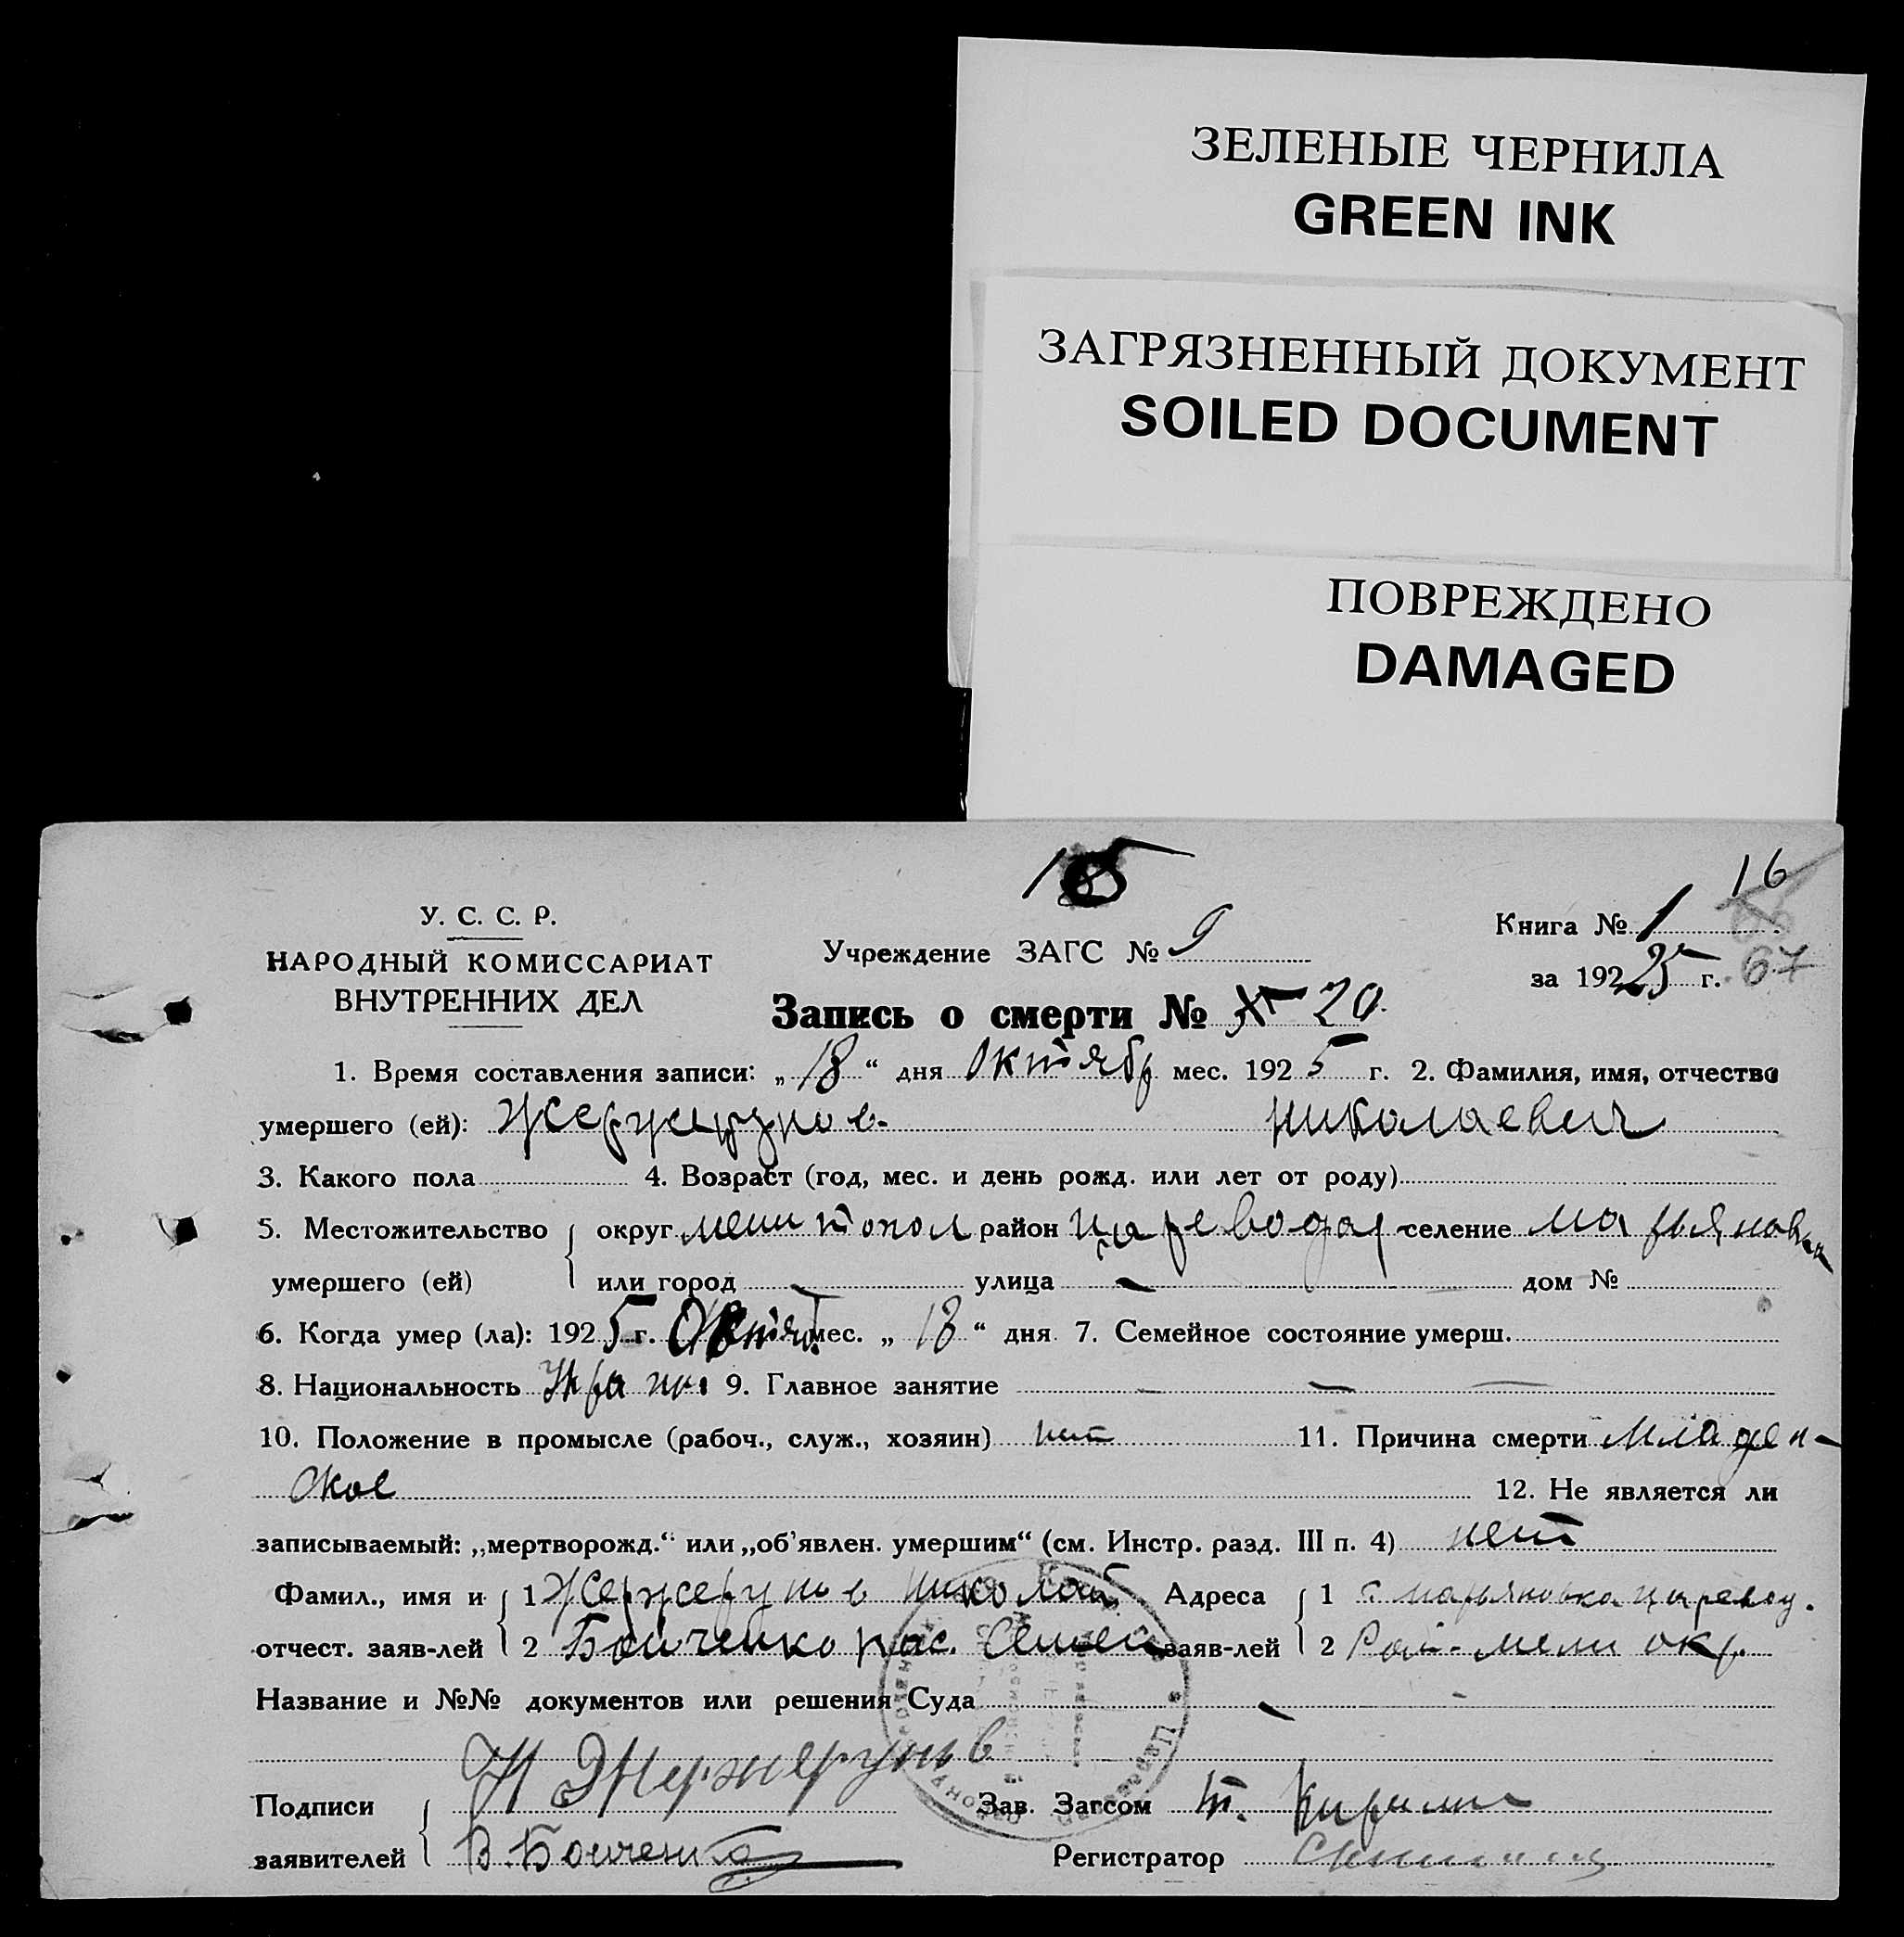 ЗЕЛЕНЫЕ ЧЕРНИЛА
GREEN INK
ЗАГРЯЗНЕННЫЙ ДОКУМЕНТ
SOILED DOCUMENT
ПОВРЕЖДЕНО
DAMAGED
16
У. С. С. Р.
НАРОДНЫЙ КОМИССАРИАТ
ВНУТРЕННИХ ДЕЛ
Учреждение ЗАГС № 9
Книга № 1
за 192 25 г. 67
Запись о смерти № 20
1. Время составления записи: „ 18 “ дня Октябр мес. 192 5 г. 2. Фамилия, имя, отчество
умершего (ей): Николаевич
3. Какого пола 4. Возраст (год, мес. и день рожд. или лет от роду)
5. Местожительство округ район Цареводар селение Марьяновка
умершего (ей) или город — улица — дом №
6. Когда умер (ла): 192 5 г. Октяб. мес. „ 18 “ дня 7. Семейное состояние умерш.
8. Национальность 9. Главное занятие — — —
10. Положение в промысле (рабоч., служ., хозяин) нет 11. Причина смерти Младен-
ское 12. Не является ли
записываемый: „мертворожд.“ или „об’явлен. умершим“ (см. Инстр. разд. III п. 4) нет
Фамил., имя и 1 Жержерунов Николай Адреса 1 с. Марьяновка Царевод.
отчест. заяв-лей 2 Бойченко Вас. заяв-лей 2 Рай- Мели окр.
Название и №№ документов или решения Суда —
Н Жержерунов
Подписи Зав. Загсом
заявителей В. Бойченко Регистратор